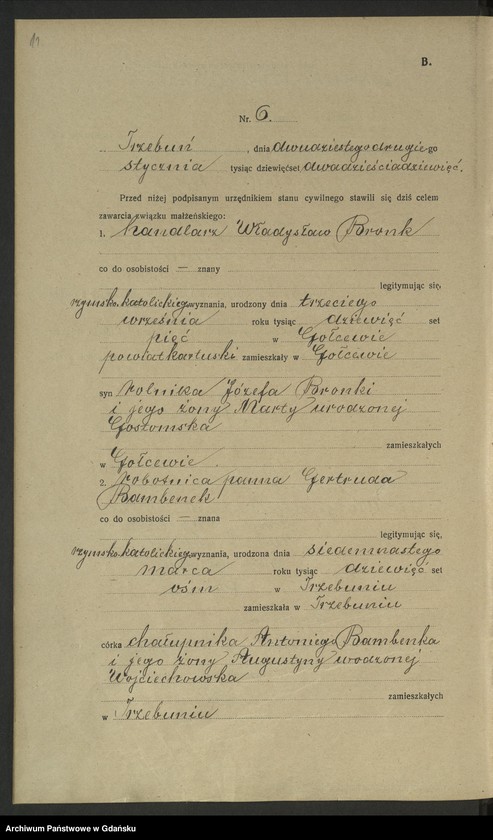 11
B.
Nr. 6.
Trzebuń, dnia dwudziestego drugie-go
stycznia tysiąc dziewięćset dwadzieściadziewięć.
Przed niżej podpisanym urzędnikiem stanu cywilnego stawili się dziś celem
zawarcia związku małżeńskiego:
1. Handlarz Władysław Bronk
co do osobistości — znany
legitymując się,
rzymsko katolickiego wyznania, urodzony dnia trzeciego
września roku tysiąc dziewięć set
pięć w Gołcewie
powiat kartuski zamieszkały w Gołcewie
syn rolnika Józefa Bronki
i jego żony Marty urodzonej
Gostomska
zamieszkałych
w Gołcewie.
2. robotnica panna Gertruda
Bambenek
co do osobistości — znana
legitymując się,
rzymsko katolickiego wyznania, urodzona dnia siedemnastego
marca roku tysiąc dziewięć set
ośm w Trzebuniu
zamieszkała w Trzebuniu
córka chałupnika Antoniego Bambenka
i jego żony Augustyny urodzonej
Wojciechowska
zamieszkałych
w Trzebuniu
Archiwum Państwowe w Gdańsku